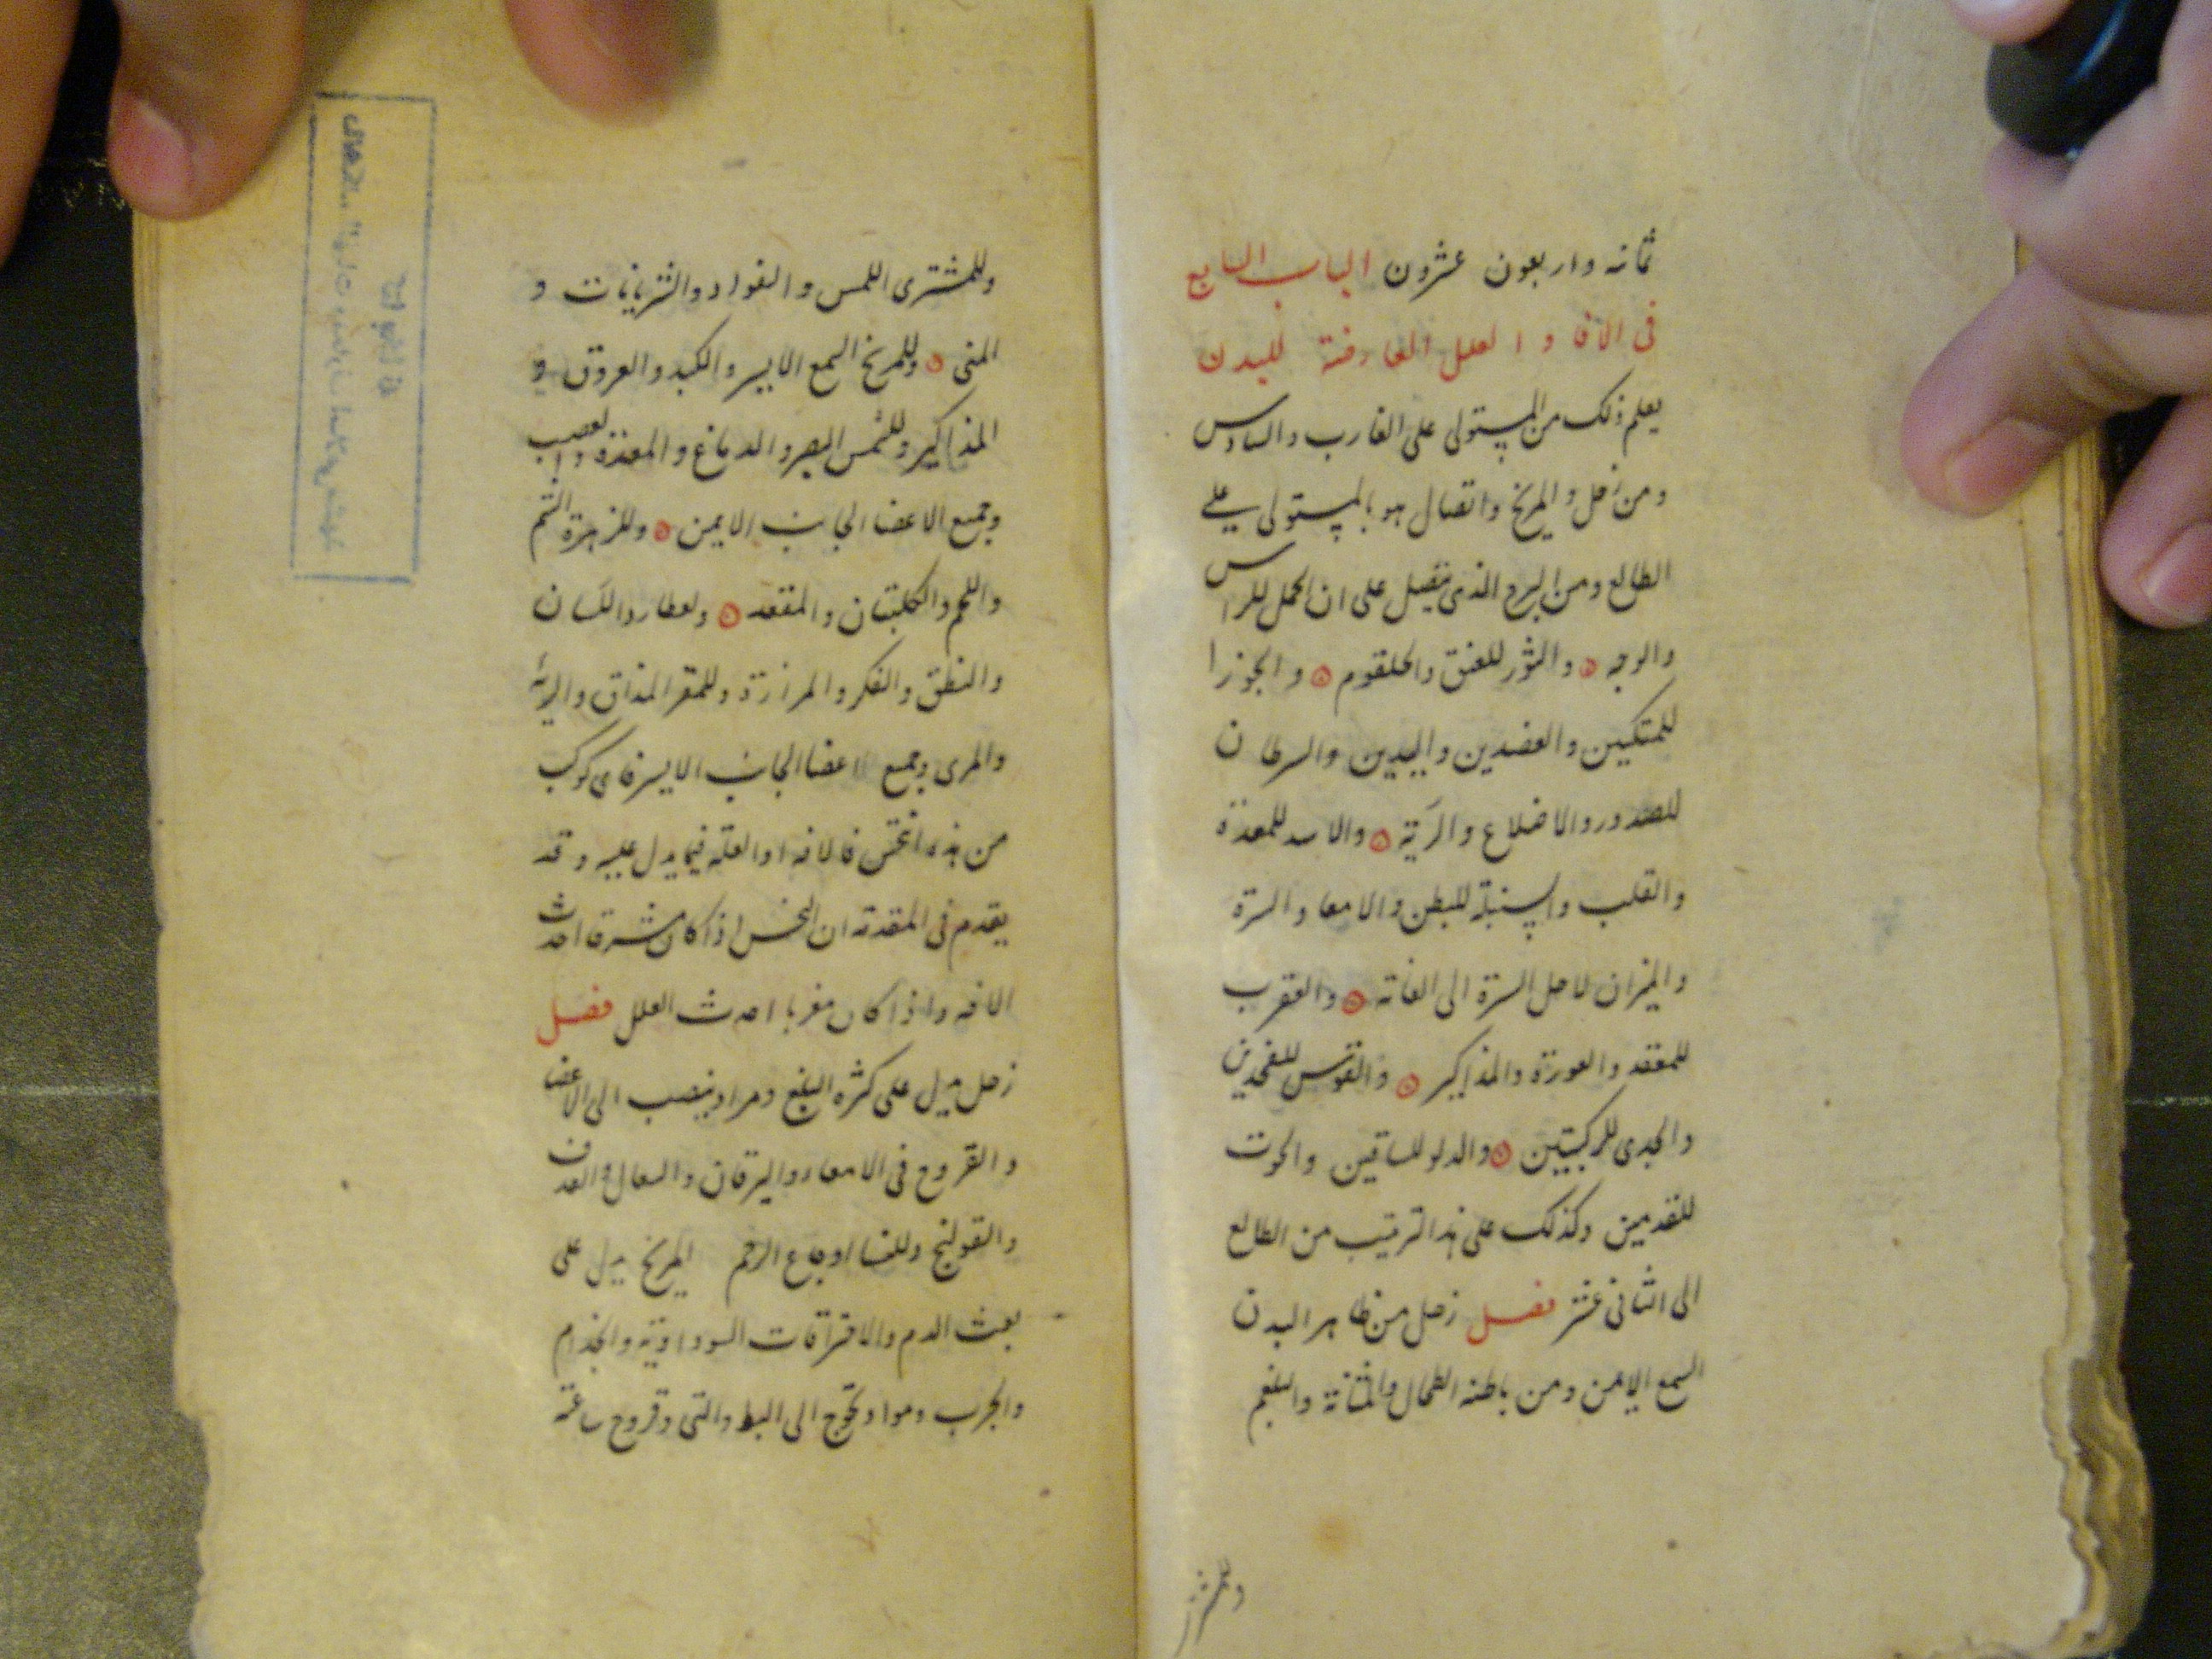 ثمانه واربعون عشرون الباب السابع
فى الافا و العلل العارضة للبدن
يعلم ذلك من المستولى على الغارب والسادس
ومن زحل والمريخ واتصال هو بالمستولى على
الطالع ومن البرج الذى على ان الحمل للراس
والوجه والثور للعنق والحلقوم والجوزا
للمنكبين والعضدين واليدين والسرطان
للصدور والاضلاع والرية والاسد للمعدة
والقلب والسنبلة للبطن والامعا والسرة
والميزان لاصل السرة الى العانه والعقرب
للمقعد والعورة والمذاكير والقوس للفخذين
والجدى للركبتين والدلو للساقين والحوت
للقدمين وكذلك على هذا الترتيب من الطالع
الى الثانى عشر فصل زحل من ظاهر البدن
السمع الايمن ومن باطنه الطحال والمثانة والبلغم
وللمشترى
وللمشترى اللمس والفواد والشريانات و
المنى وللمريخ السمع الايسر والكبد والعروق و
المذاكير وللشمس البصر والدماغ والمعدة والعصب
وجميع الاعضا الجانب الايمن وللزهرة الشم
واللحم والكليتان والمقعد ولعطارد اللسان
والنطق والفكر والمرارة وللقمر المذاق والرية
والمرى وجميع اعضا الجانب الايسر فاى كوكب
من هذه انتحس فالافه او العلة فيما يدل عليه وقد
يقدم فى المقدمة ان النحس اذا كان مشرقا احدث
الافه واذا كان مغربا احدث العلل فصل
زحل يدل على كثره البلغم ومراد ينصب الى الاعضا
والقروح فى الامعاء واليرقان والسعال و
والقولنج وللنسا اوجاع الرحم المريخ يدل على
بعث الدم والاحتراقات السوداوية والجذام
والجرب ومواد تحوج الى البط والكى وقروح ساعته